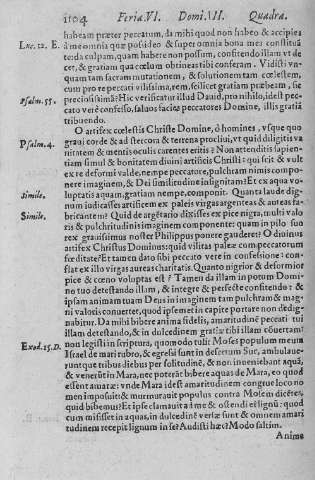 1104 Feria.VI. Domi.VII. Quadra.
habeam præter peccatum, da mihi quod non habeo & accipies
Luc. 12. E. à me omnia quæ possideo & super omnia bona mei constituā
te: da culpam, quam habere non possum, confitendo illam vt de
cet, & gratiam qua cœlum obtineas tibi conferam. Vidisti vn
quam tam sacram mutationem, & solutionem tam cœlestem,
cum pro re peccati vilissima, rem, scilicet gratiam præbeam, sic
Psalm. 55. preciosissimā? Hic verificatur illud Dauid, pro nihilo, idest pec
cato verè confesso, saluos facies peccatores Domine, illis gratiā
tribuendo.
O artifex cœlestis Christe Domine, ô homines, vsque quo
Psalm. 4. graui corde & ad stercora & terrena procliui, vt quid diligitis va
nitatem & mentis oculi cæcentes eritis? Non attenditis sapien-
tiam simul & bonitatem diuini artificis Christi: qui scit & vult
ex re deformi valde, nempe peccatore, pulchram nimis compo
nere imaginem, & Dei similitudine insignitam? Et ex aqua vo
Simile. luptatis aquam, gratiam nempe, componit. Quanta laude dig-
num iudicasses artificem ex paleis virgas argenteas & aureas fa-
Simile. bricantem? Quid de argētario dixisses ex pice nigra, multi valo
ris & pulchritudinis imaginem componente: quam in pilo suo
rex grauissimus noster Philippus ponere gauderet? O diuinus
artifex Christus Dominus: quid vilitas paleæ cum peccatorum
fœditate? Et tamen dato sibi peccato vere in confessione: con-
flat ex illo virgas aureas charitatis. Quanto nigrior & deformior
pice & cœno voluptas est? Tamen da illam in potum Domi-
no tuo detestando illam, & integrè & perfectè confitendo: &
ipsam animam tuam Deus in imaginem tam pulchram & mag-
ni valoris conuertet, quod ipsemet in capite portare non dedig-
nabitur. Da mihi bibere animæ fidelis, amaritudinē peccati tui
illam detestando, & in dulcedinem gratiæ tibi illam cōuertam:
Exod. 15. D. non legisti in scriptura, quomodo tulit Moses populum meum
Israel de mari rubro, & egressi sunt in desertum Sur, ambulaue-
runtque tribus diebus per solitudinē, & non inueniebant aquā,
& venerūt in Mara, nec poterāt bibere aquas de Mara, eo quod
essent amaræ: vnde Mara idest amaritudinem congrue loco no
men imposuit & murmurauit populus contra Mosem dicētes,
quid bibemus? Et ipse clamauit ad me & ostendi ei lignū: quod
cum misisset in aquas, in dulcedinē versæ sunt & omnem amari
tudinem recepit lignum in se? Audisti hæc? Modo saltim.
Anime